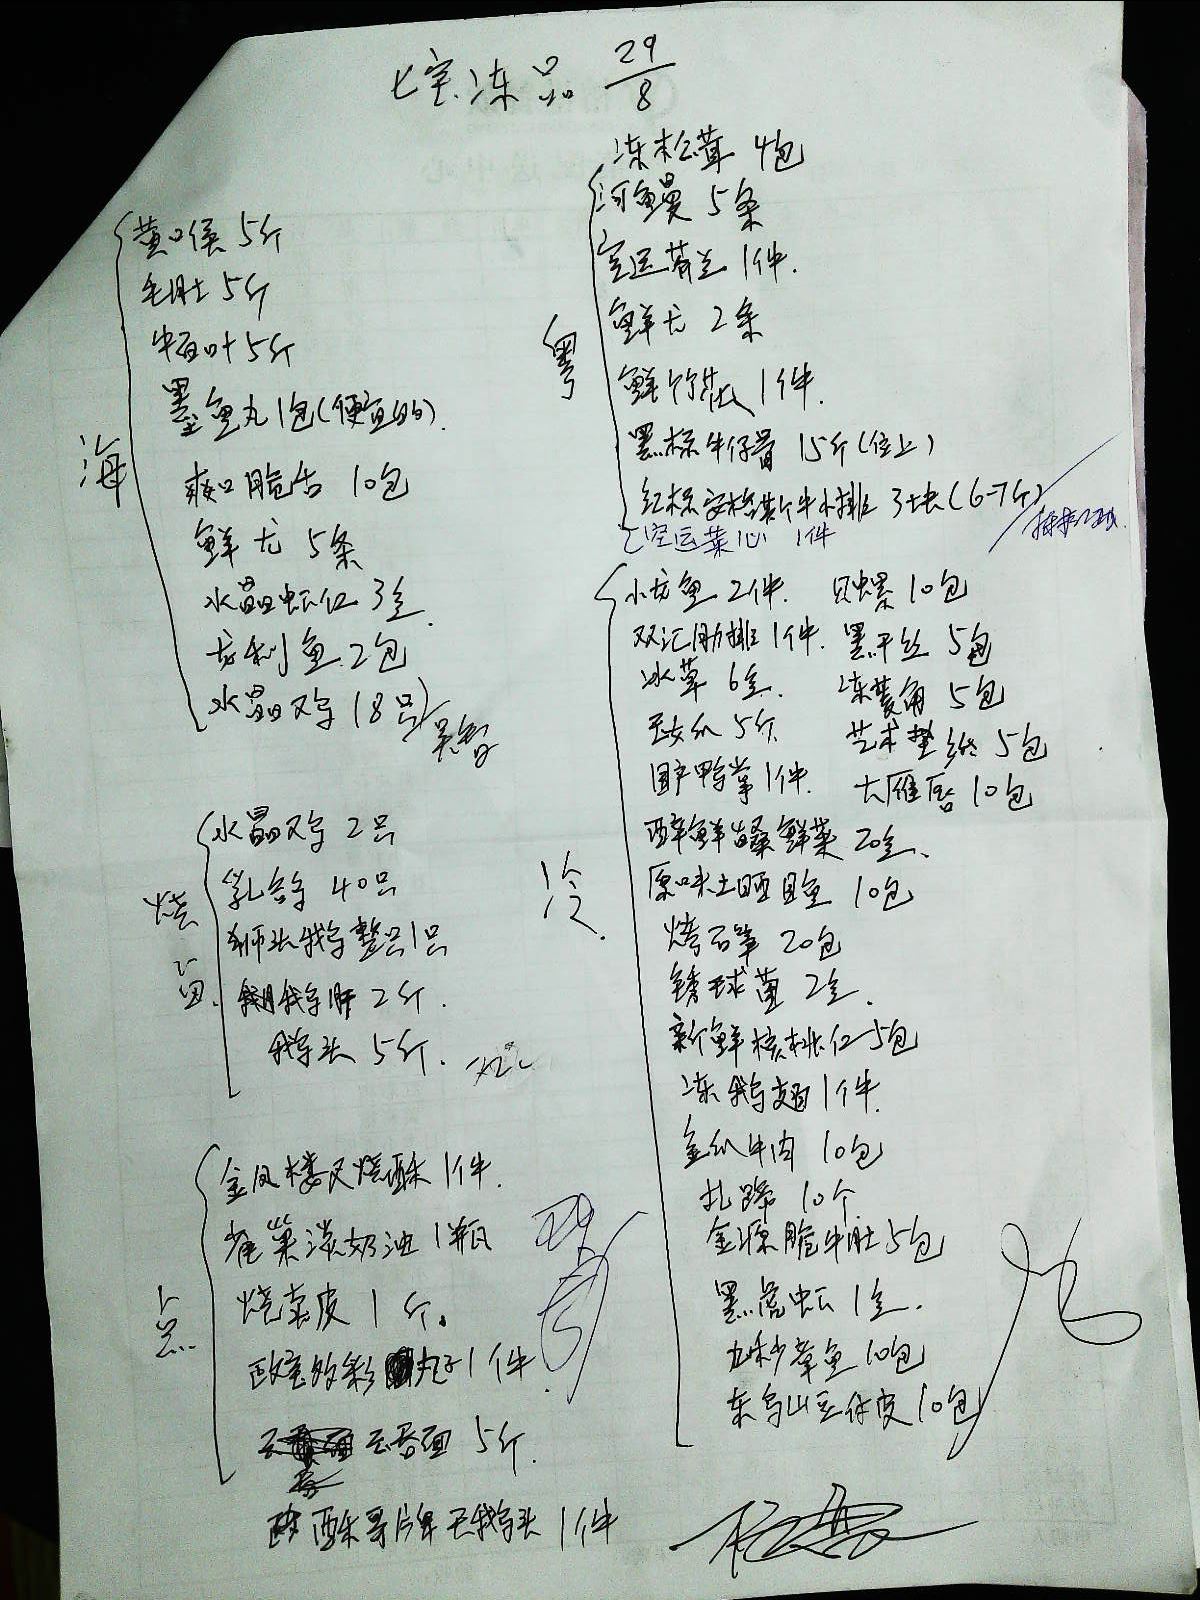 七宝冻品 29/8
海
黄口侯 5斤
毛肚 5斤
牛百叶 5斤
墨鱼丸 1包(便宜的)
爽口脆舌 10包
鲜尤 5条
水晶虾仁 3盒
龙利鱼 2包
水晶鸡 18只
烧
水晶鸡 2只
乳鸽 40只
狮头鹅整只1只
鹅肝 2斤
鹅头 5斤
点
金凤楼叉烧酥 1件
雀巢淡奶油 1瓶
烧卖皮 1斤
丸子 1件
云吞面 5斤
1件
粤
冻松茸 4包
河鳗 5条
空运芥兰 1件
鲜尤 2条
鲜竹 1件
黑标牛仔骨 15斤(位上)
红标安格斯牛小排 3块(6-7斤)
空运菜心 1件
冷
小龙鱼 2件 只螺 10包
双汇肋排 1件 黑千丝 5包
冰草 6盒 冻菱角 5包
5斤 艺术垫纸 5包
国产鸭掌 1件 10包
醉鲜 鲜菜 20盒
原味土晒目鱼 10包
烤石笋 20包
锈球菌 2盒
新鲜核桃仁 5包
冻鹅翅 1件
牛肉 10包
扎蹄 10个
金源脆牛肚 5包
黑虎虾 1盒
章鱼 10包
东乌山豆仔皮 10包